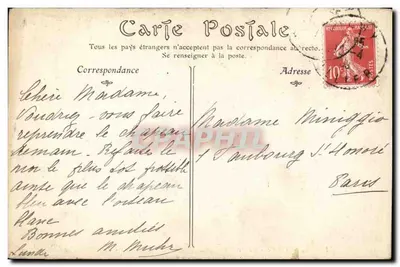 Carte Postale
Tous les pays étrangers n'acceptent pas la correspondance au recto.
Se renseigner à la poste.
Correspondance
Adresse
10
Chère Madame,
Voudriez-vous faire
reprendre le chapeau
demain.
le plus tôt possible
ainsi que le chapeau
bleu avec
blanc
Bonnes amitiés
M.
Lundi
Madame Miniggio
1 Faubourg St Honoré
Paris